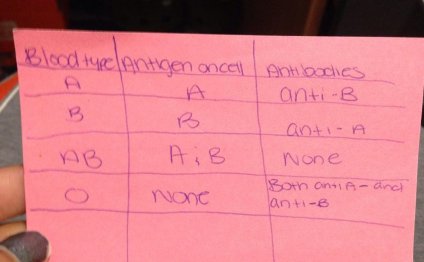 Blood type Antigen on cell Antibodies
A A anti-B
B B anti-A
AB A ; B None
O None Both anti A- and
anti-B